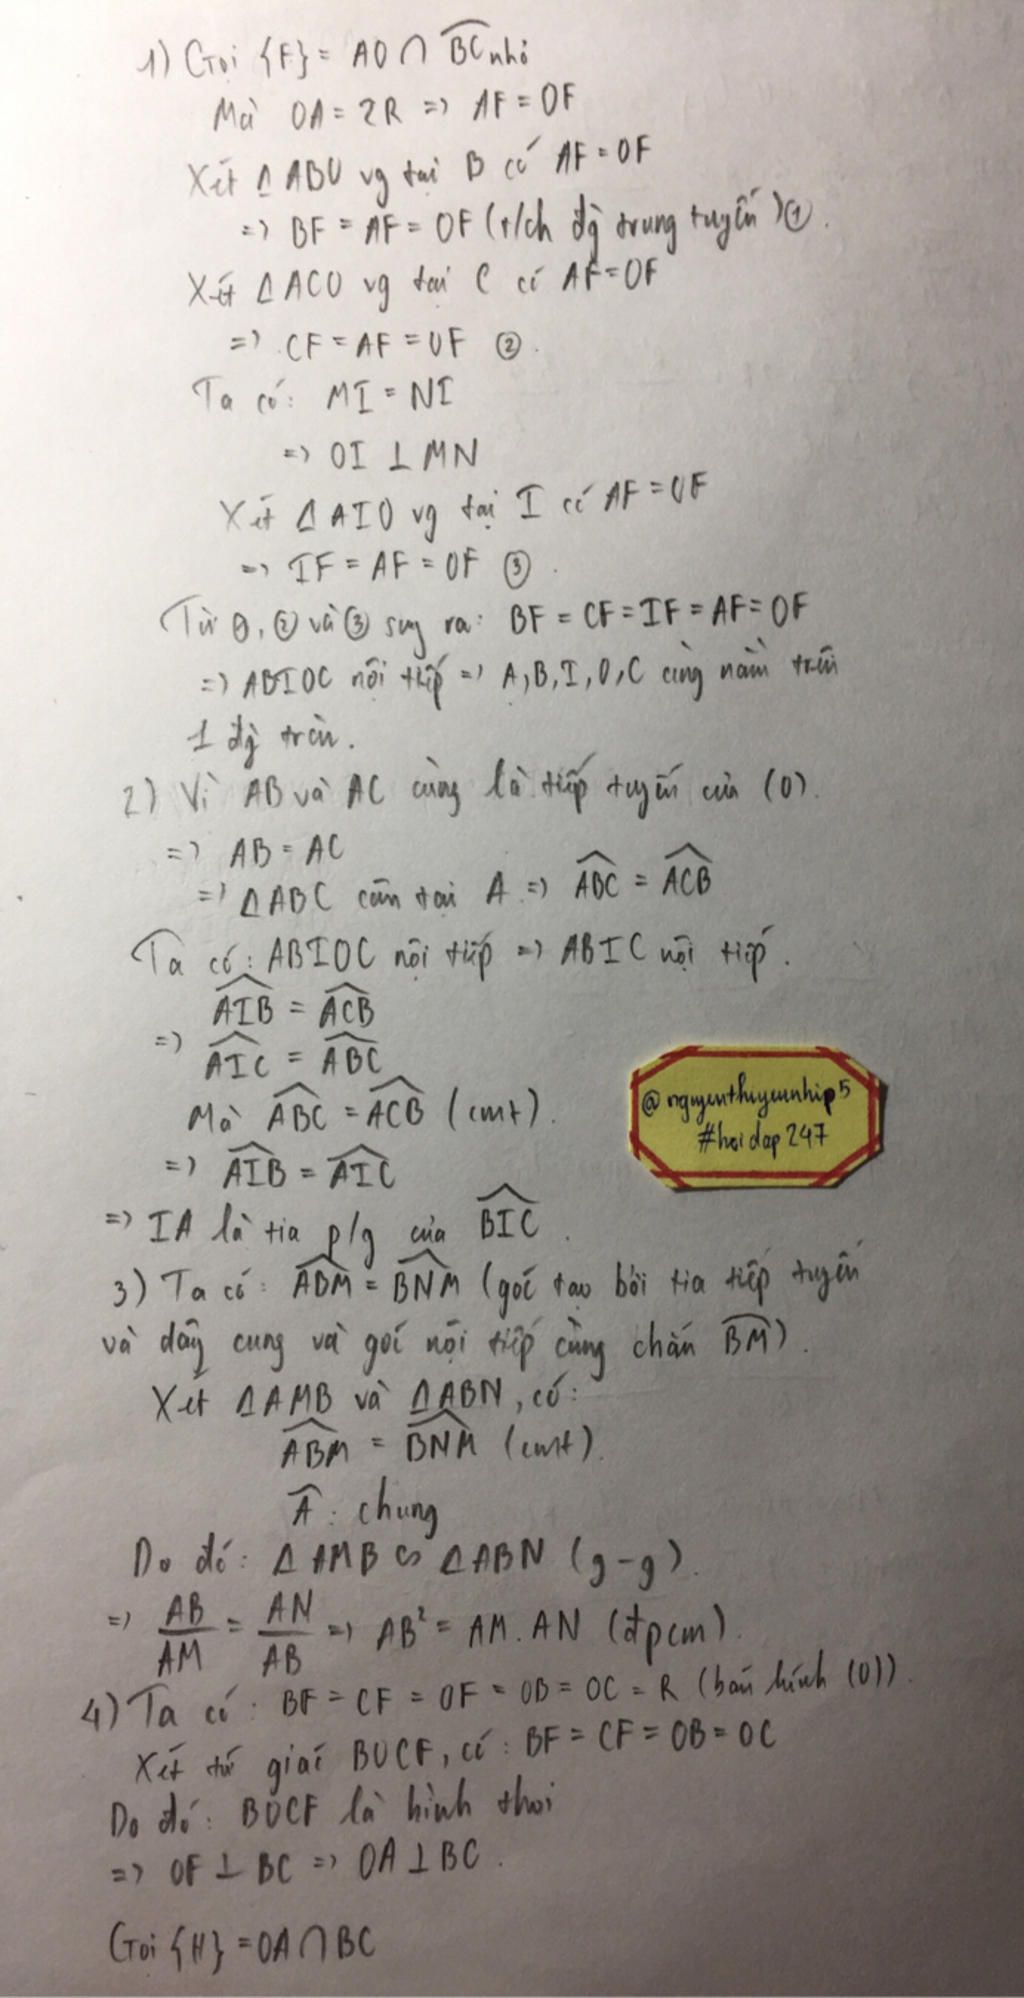 1) Gọi {F} = AO ∩ BC nhỏ
Mà OA = 2R => AF = OF
Xét Δ ABO vg tại B có AF = OF
=> BF = AF = OF (t/ch đg trung tuyến) ①.
Xét Δ ACO vg tại C có AF = OF
=> CF = AF = OF ②.
Ta có: MI = NI
=> OI ⊥ MN
Xét Δ AIO vg tại I có AF = OF
=> IF = AF = OF ③.
Từ ①, ② và ③ suy ra: BF = CF = IF = AF = OF
=> ABIOC nội tiếp => A, B, I, O, C cùng nằm trên
1 đg tròn.
2) Vì AB và AC cùng là tiếp tuyến của (O).
=> AB = AC
=> Δ ABC cân tại A => ABC = ACB
Ta có: ABIOC nội tiếp => ABIC nội tiếp.
AIB = ACB
=> AIC = ABC
Mà ABC = ACB (cmt).
=> AIB = AIC
=> IA là tia p/g của BIC.
@nguyenthuyeunhip5
#hoidap247
3) Ta có: ABM = BNM (góc tạo bởi tia tiếp tuyến
và dây cung và góc nội tiếp cùng chắn BM).
Xét Δ AMB và Δ ABN, có:
ABM = BNM (cmt).
A: chung
Do đó: Δ AMB ∽ Δ ABN (g-g).
=> AB/AM = AN/AB => AB² = AM. AN (đpcm).
4) Ta có: BF = CF = OF = OB = OC = R (bán kính (O)).
Xét tứ giác BOCF, có: BF = CF = OB = OC
Do đó: BOCF là hình thoi
=> OF ⊥ BC => OA ⊥ BC.
Gọi {H} = OA ∩ BC